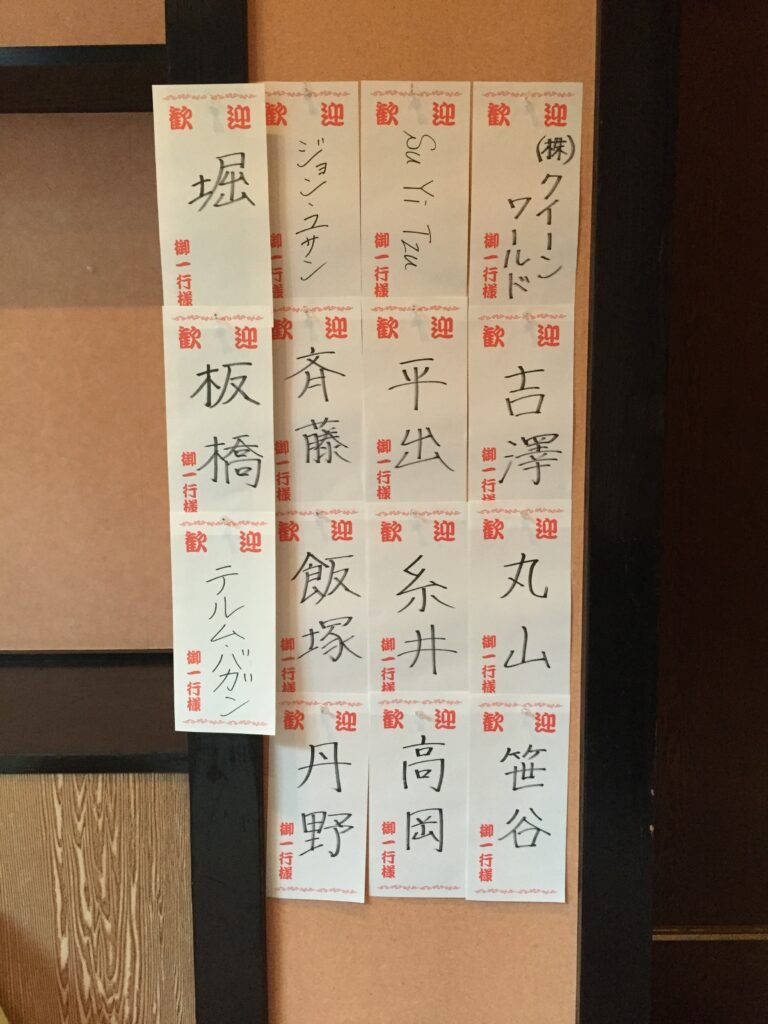 歓迎
(株)クイーン
ワールド
御一行様
歓迎
Su Yi Tzu
御一行様
歓迎
ジョン・ユサン
御一行様
歓迎
堀
御一行様
歓迎
吉澤
御一行様
歓迎
平出
御一行様
歓迎
斉藤
御一行様
歓迎
板橋
御一行様
歓迎
丸山
御一行様
歓迎
糸井
御一行様
歓迎
飯塚
御一行様
歓迎
テルム・バガン
御一行様
歓迎
笹谷
御一行様
歓迎
高岡
御一行様
歓迎
丹野
御一行様